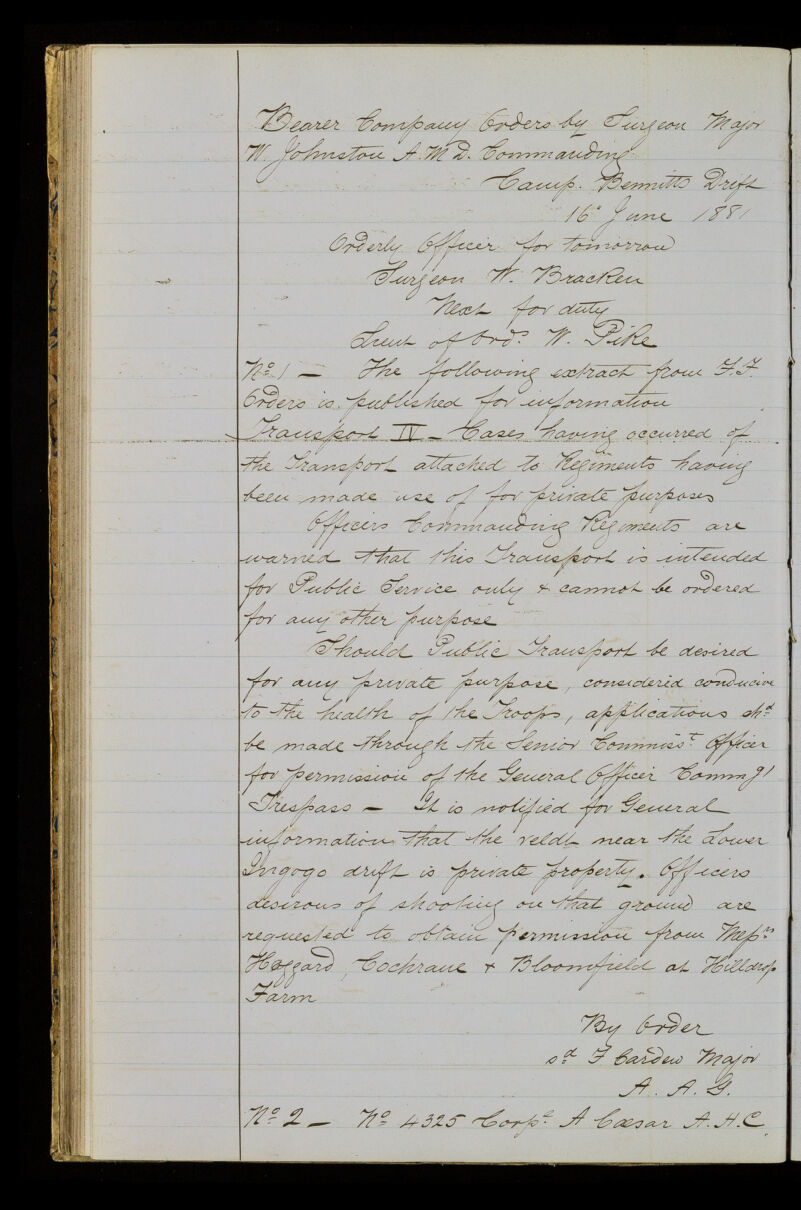 Bearer Company Orders by Surgeon Major
W. Johnston A. M D. Commanding
Camp. Bennitts Drift
16th June 1881
Orderly Officer for tomorrow
Surgeon W. Bracken
Next for duty
Lieut of Ord.s W. Pike
No. 1 — The following extract from F.F.
Orders is published for information
Transport IV — Cases having occurred of
the Transport attached to Regiments having
been made use of for private purposes
Officers Commanding Regiments are
warned that this Transport is intended
for Public Service only & cannot be ordered
for any other purpose
Should Public Transport be desired
for any private purpose, considered conducive
to the health of the Troops, applications shd
be made through the Senior Commisst Officer
for permission of the General Officer Commg
Trespass — It is notified for General
information that the veldt near the Lower
Ingogo drift is private property. Officers
desirous of shooting on that ground are
requested to obtain permission from Messrs
Haggard, Cochrane & Bloomfield at Hilldrop
Farm
By Order
sd F Carden Major
A. A. G.
No 2 — No 4325 Corpl A Cæsar A.H.C.